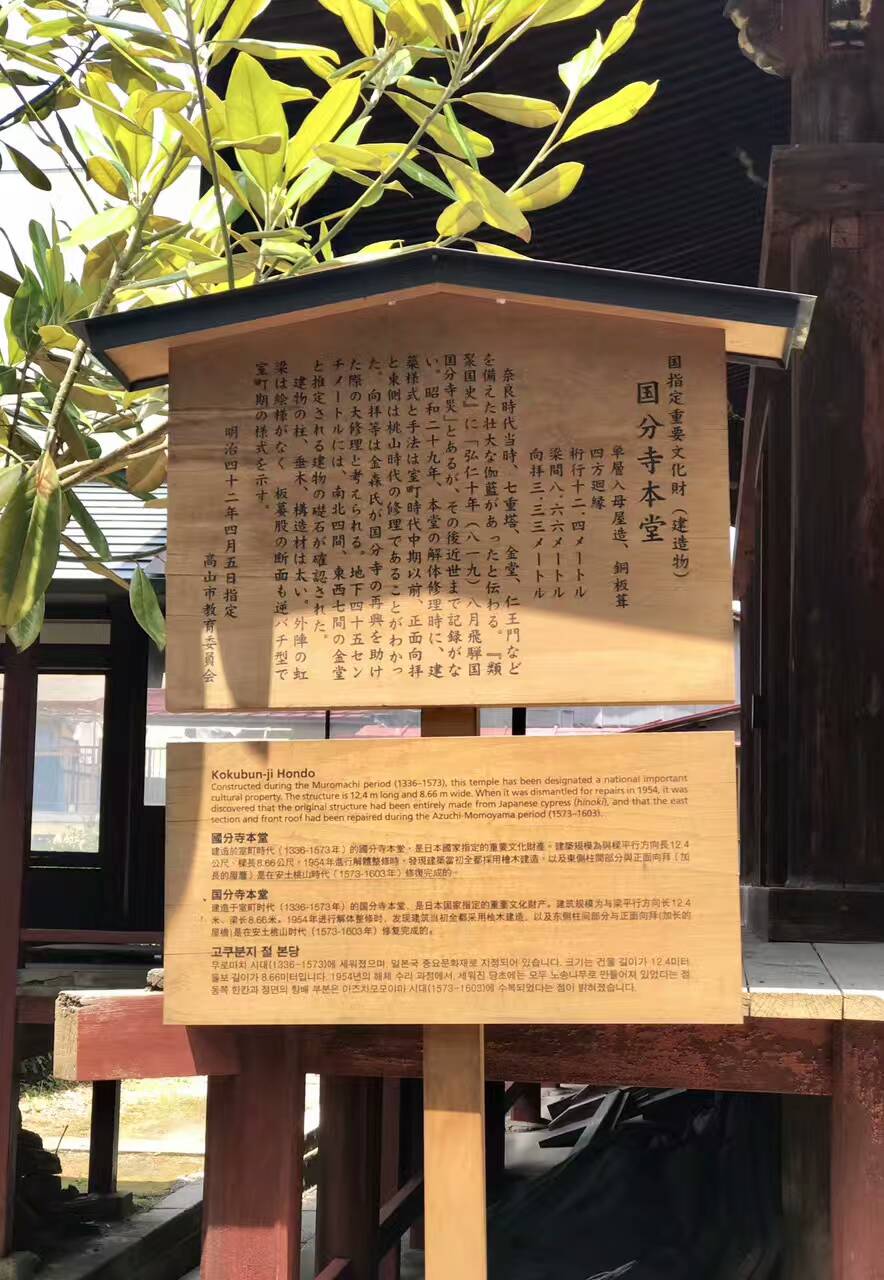 国指定重要文化財（建造物）
国分寺本堂
単層入母屋造、銅板葺
四方廻縁
桁行十二.四メートル
梁間八.六六メートル
向拝三.三三メートル
奈良時代当時、七重塔、金堂、仁王門など
を備えた壮大な伽藍があったと伝わる。『類
聚国史』に「弘仁十年（八一九）八月飛騨国
国分寺災」とあるが、その後近世まで記録がな
い。昭和二十九年、本堂の解体修理時に、建
築様式と手法は室町時代中期以前、正面向拝
と東側は桃山時代の修理であることがわかっ
た。向拝等は金森氏が国分寺の再興を助け
た際の大修理と考えられる。地下四十五セン
チメートルには、南北四間、東西七間の金堂
と推定される建物の礎石が確認された。
建物の柱、垂木、構造材は太い。外陣の虹
梁は絵様がなく、板蟇股の断面も逆バチ型で
室町期の様式を示す。
明治四十二年四月五日指定
高山市教育委員会
Kokubun-ji Hondo
Constructed during the Muromachi period (1336–1573), this temple has been designated a national important
cultural property. The structure is 12.4 m long and 8.66 m wide. When it was dismantled for repairs in 1954, it was
discovered that the original structure had been entirely made from Japanese cypress (hinoki), and that the east
section and front roof had been repaired during the Azuchi-Momoyama period (1573–1603).
國分寺本堂
建造於室町時代（1336-1573年）的國分寺本堂，是日本國家指定的重要文化財產。建築規模為與樑平行方向長12.4
公尺、樑長8.66公尺。1954年進行解體整修時，發現建築當初全都採用檜木建造，以及東側柱間部分與正面向拜（加
長的屋簷）是在安土桃山時代（1573-1603年）修復完成的。
国分寺本堂
建造于室町时代（1336-1573年）的国分寺本堂，是日本国家指定的重要文化财产。建筑规模为与梁平行方向长12.4
米、梁长8.66米。1954年进行解体整修时，发现建筑当初全都采用桧木建造，以及东侧柱间部分与正面向拜(加长的
屋檐)是在安土桃山时代（1573-1603年）修复完成的。
고쿠분지 절 본당
무로마치 시대(1336-1573)에 세워졌으며, 일본국 중요문화재로 지정되어 있습니다. 크기는 건물 길이가 12.4미터
들보 길이가 8.66미터입니다. 1954년의 해체 수리 과정에서, 세워진 당초에는 모두 노송나무로 만들어져 있었다는 점
동쪽 한칸과 정면의 향배 부분은 아즈치모모야마 시대(1573-1603)에 수복되었다는 점이 밝혀졌습니다.